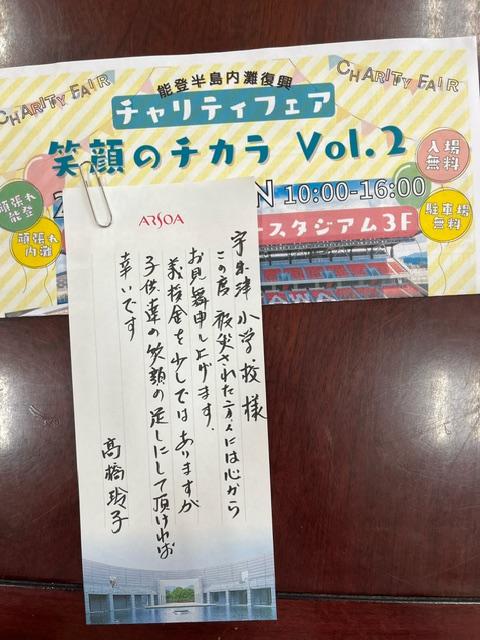 CHARITY FAIR
能登半島内灘復興
CHARITY FAIR
チャリティフェア
笑顔のチカラ Vol.2
入場
無料
10:00-16:00
頑張れ
能登
頑張れ
内灘
駐車場
無料
スタジアム3F
ARSOA
宇出津小学校様
この度 被災された方々には心から
お見舞申し上げます。
義援金を少しではありますが
子供達の笑顔の足しにして頂ければ
幸いです
高橋玲子